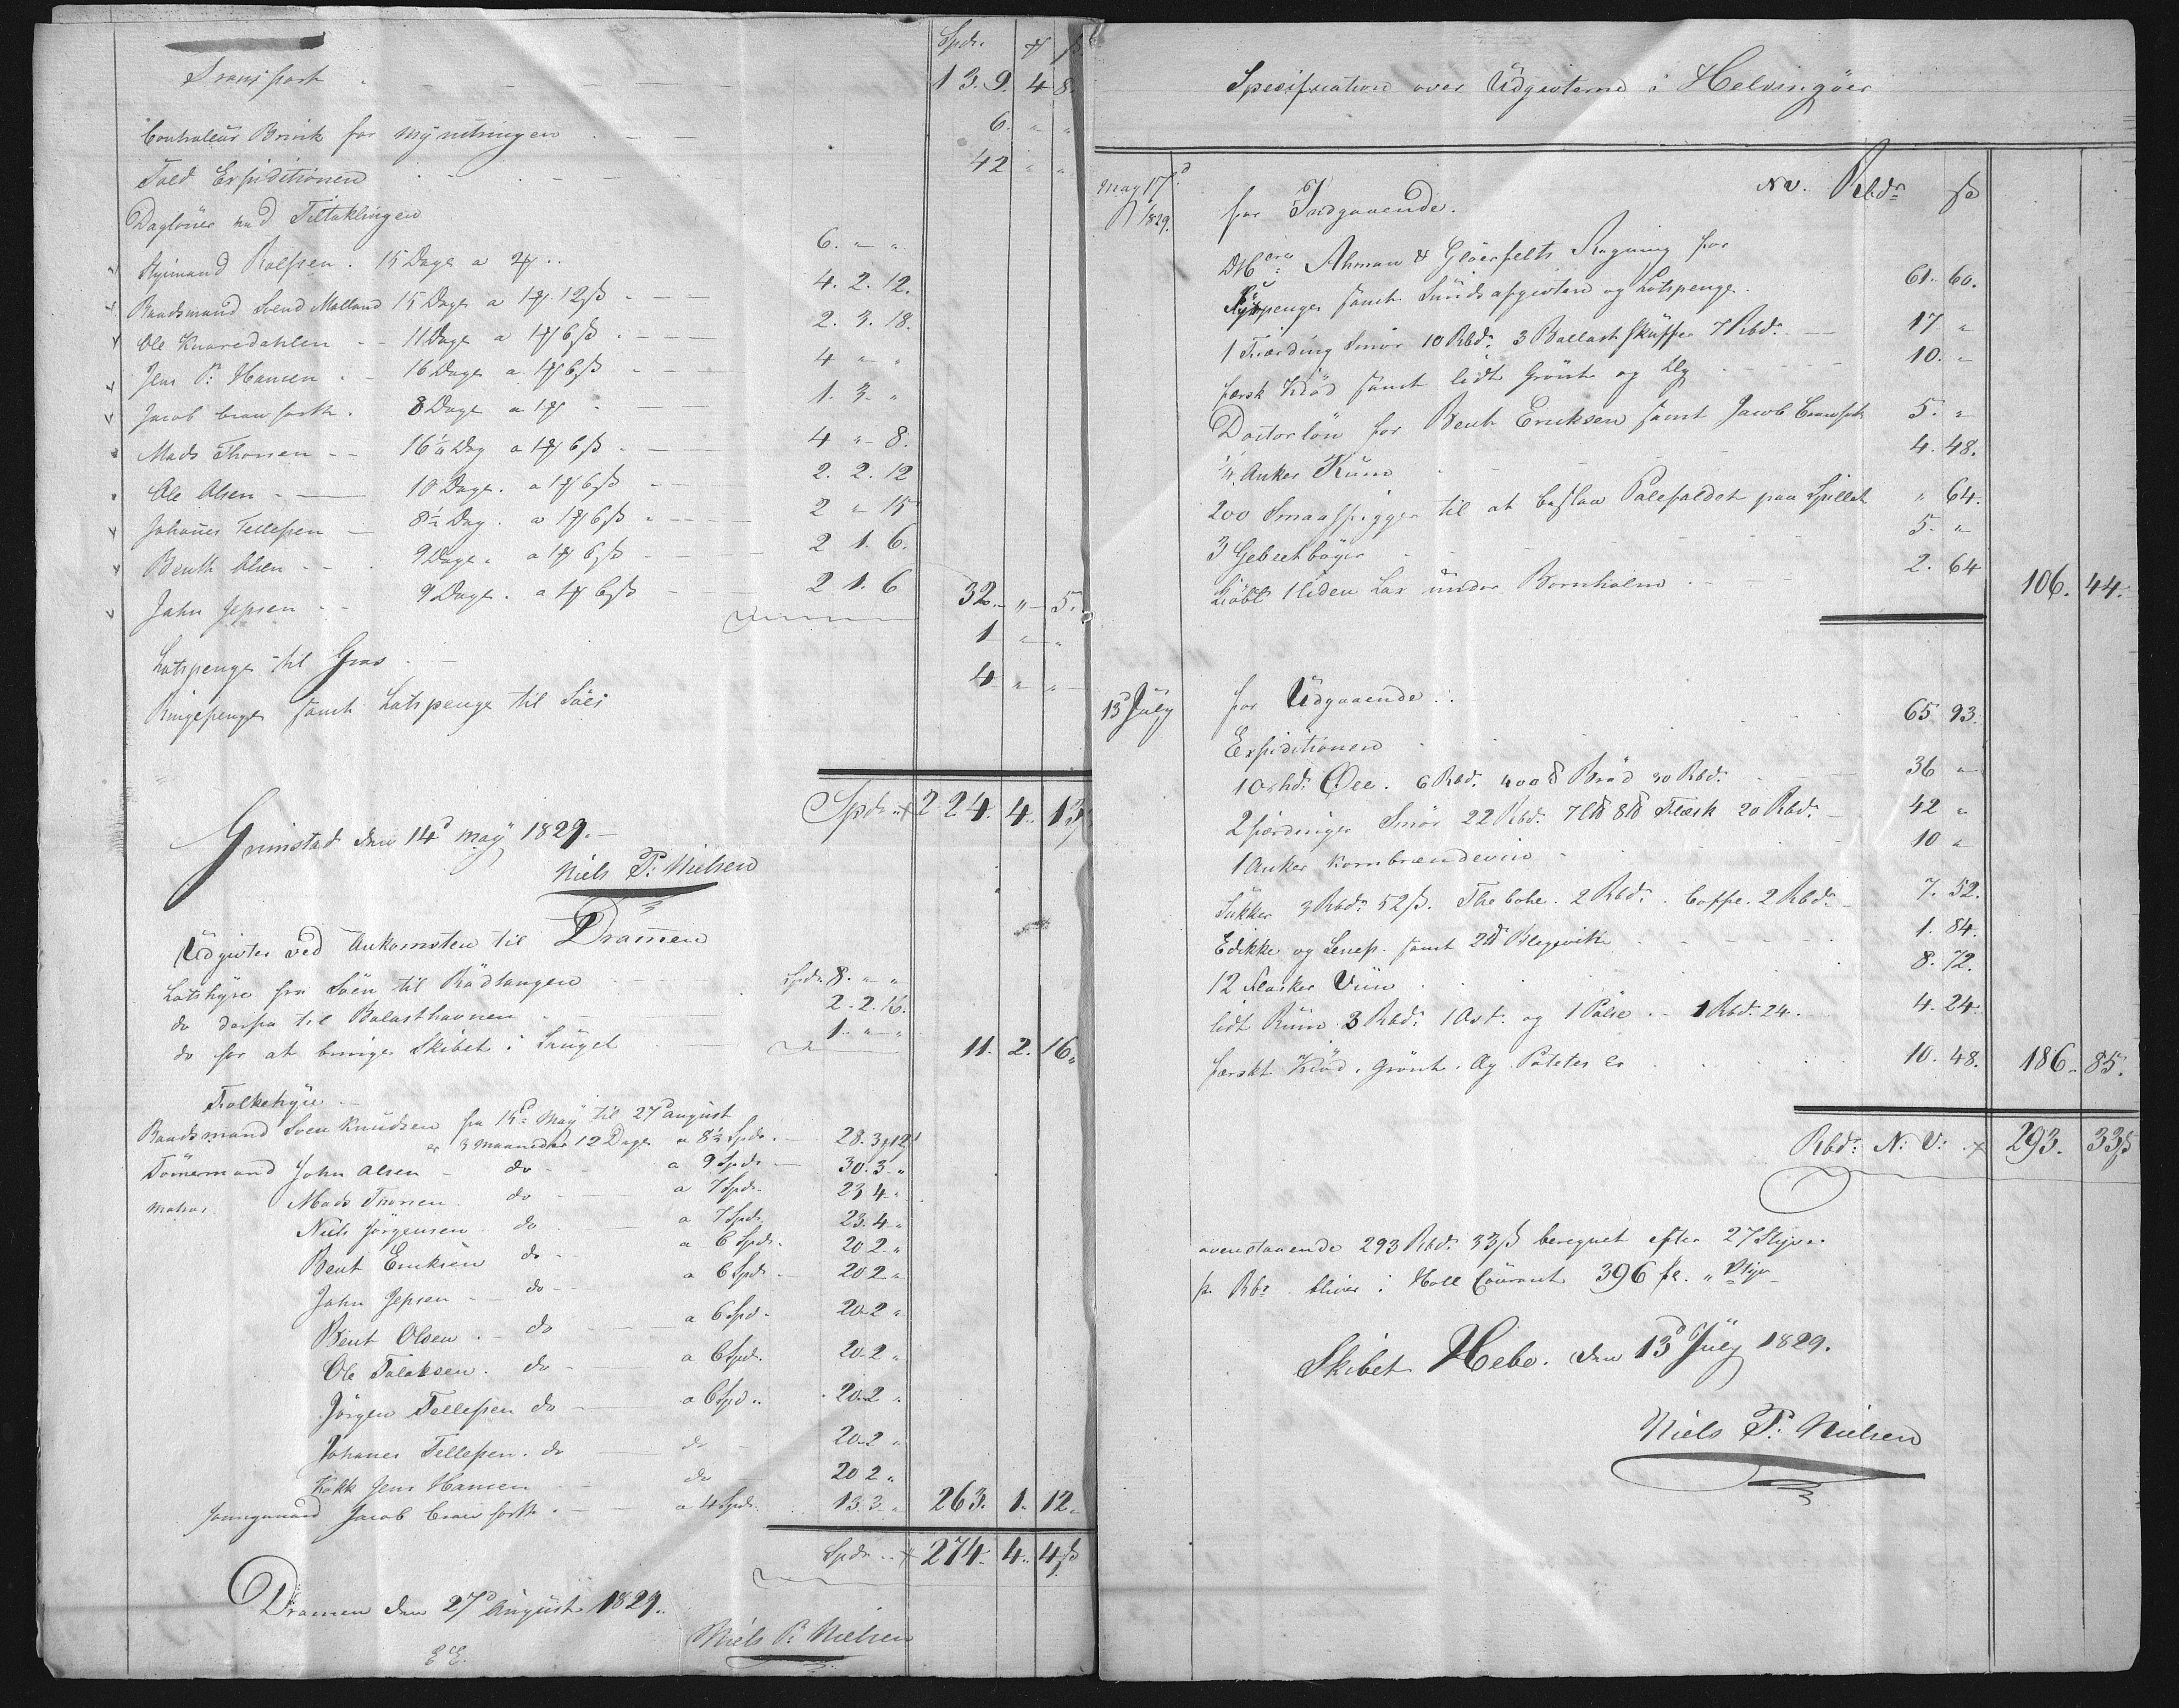 Spdr. ß
Transport 139. 4 8.
Controleur Brink for Mynstringen 6. " "
Told Expeditionen 42 " "
Daglöner ved Tiltaklingen
Styrmand Rolfsen. 15 Dage a 2 6. " "
Baadsmand Svend Malland 15 Dage a 1 12ß 4. 2. 12.
Ole Knaredahlen 11 Dage a 1 6ß 2. 3. 18.
Jens P: Hansen 16 Dage a 1 6ß 4 " "
Jacob 8 Dage a 1 1. 3. "
Mads Thorsen 16½ Dag a 1 6ß 4 " 8.
Ole Olsen 10 Dage. a 1 6ß 2. 2. 12
Johanes Tellefsen 8½ Dag. a 1 6ß 2 " 15
Benth Olsen 9 Dage. a 1 6ß 2 1. 6.
John Jepsen 9 Dage. a 1 6ß 2 1. 6 32. " 5.
Lotspenge til Groos 1 " "
Ringepenge samt Lotspenge til Söes 4 " "
Spdr. 224. 4. 13ß
Grimstad den 14d May 1829.
Niels P: Nielsen
Udgivter ved Ankomsten til Dramen
Lotshyre fra Söen til Rödtangen Spdr 8. " "
do derfra til Balasthavnen 2. 2. 16.
do for at bringe Skibet i 1. " " 11. 2. 16"
Folkehyre
Baadsmand Sven Knudsen fra 15d May til 27d august
er 3 Maaneder 12 Dage a 8½ Spdr. 28. 3 12
Tömermand John Olsen do a 9 Spdr 30. 3. "
Matros Mads Thorsen do a 7 Spdr. 23 4 "
Niels Jörgensen do a 7 Spdr. 23. 4 "
Bent Eriksen do a 6 Spdr. 20 2. "
John Jepsen do a 6 Spdr. 20 2 "
Bent Olsen do a 6 Spd. 20. 2 "
Ole Talaksen. do a 6 Spdr. 20. 2 "
Jörgen Tellefsen do a 6 Spd. 20. 2 "
Johanes Tellefsen. do do 20. 2 "
Kokk Jens Hansen do 20 2 "
Jungmand Jacob a 4 Spdr. 13. 3 " 263. 1. 12"
Spdr. 274. 4. 4ß
Dramen den 27d August 1829.
Niels P: Nielsen
Spesification over Udgivterne i Helsingöer
May 17d 1829. for Indgaaende. NV. Rbdr ß
Ahman & Glöerfelts Regning for
samt Sundsafgivten og Lotspenge. 61. 60.
1 Fiærding Smör 10 Rbdr. 3 Ballast skuffer 7 Rbdr. 17 "
færsk Kiöd samt lidt Grönt og 10. "
Doctorlön for Bent Eriksen samt Jacob 5. "
Anker Rum 4. 48.
200 Smaaspigger til at beslaa Palefaldet paa Spillet " 64.
3 Gebeetböger 5. "
kiöbt 1 liden Lax under Bornholm 2. 64 106. 44.
13 July for Udgaaende.
Expeditionen 65 93.
10 shd. Öee. 6 Rbd. 400 ℔ Bröd 30 Rbdr. 36 "
2 fierdinger Smör 22 Rbd. 7 L℔ 8 ℔ Flæsk 20 Rbdr. 42 "
1 Anker Kornbrændeviin 10 "
Sukker 3 Rbdr 52ß. Thebohe. 2 Rbdr. Coffe. 2 Rbdr. 7. 52.
Edikke og Senep. samt 2 ℔ 1. 84.
12 Flasker Viin 8. 72.
lidt Rum 3 Rbdr. 1 Ost. og 1 Pölse 1 Rbd. 24. 4. 24.
færskt Kiöd, Grönt. og Poteter 10. 48. 186. 85.
Rbdr: N: V: 293. 33ß
ovenstaaende 293 Rbdr. 33ß beregnet efter 27 Styver
pr Rbr bliver i Holl Courant 396 fl. "
Skibet Hebe. den 13d July 1829.
Niels P: Nielsen